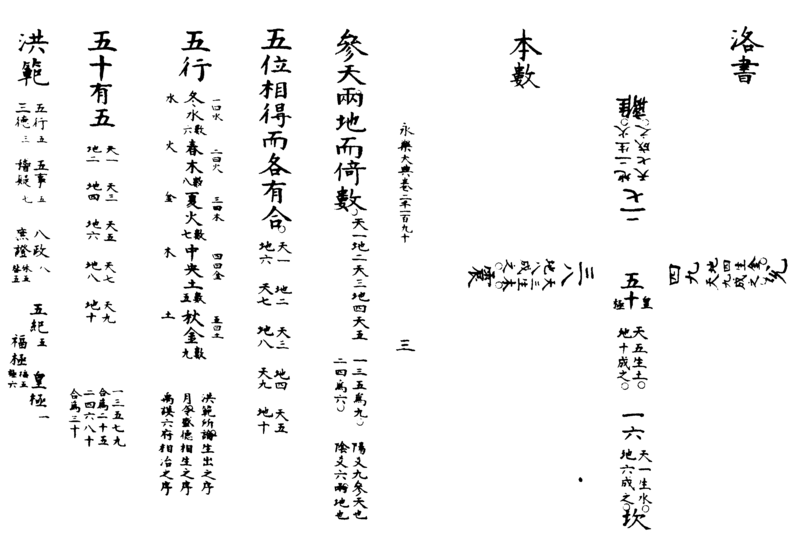 洛書
離 地二生火 天七成之 二七
兌 地四生金 天九成之 四九
五十 皇極 天五生土 地十成之
三八 天三生木 地八成之 震
一六 天一生水 地六成之 坎
本數
永樂大典卷二千一百九十
三
參天兩地而倚數 天一地二天三地四天五 一三五爲九 二四爲六 陽爻九參天也 陰爻六兩地也
五位相得而各有合 天一 地二 天三 地四 天五
地六 天七 地八 天九 地十
一曰水 二曰火 三曰木 四曰金 五曰土
五行 冬水數六 春木數八 夏火數七 中央土數五 秋金數九
水 火 金 木 土
洪範所論生出之序
月令盛德相生之序
禹謨六府相治之序
五十有五 天一 天三 天五 天七 天九
地二 地四 地六 地八 地十
一三五七九
合爲二十五
二四六八十
合爲三十
洪範 五行五 五事五 八政八 五紀五 皇極一
三德三 稽疑七 庶證休五咎五 福極福五極六